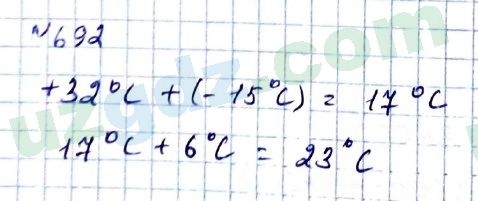 № 692
+32°C + (-15°C) = 17°C
17°C + 6°C = 23°C
uzgdz.com